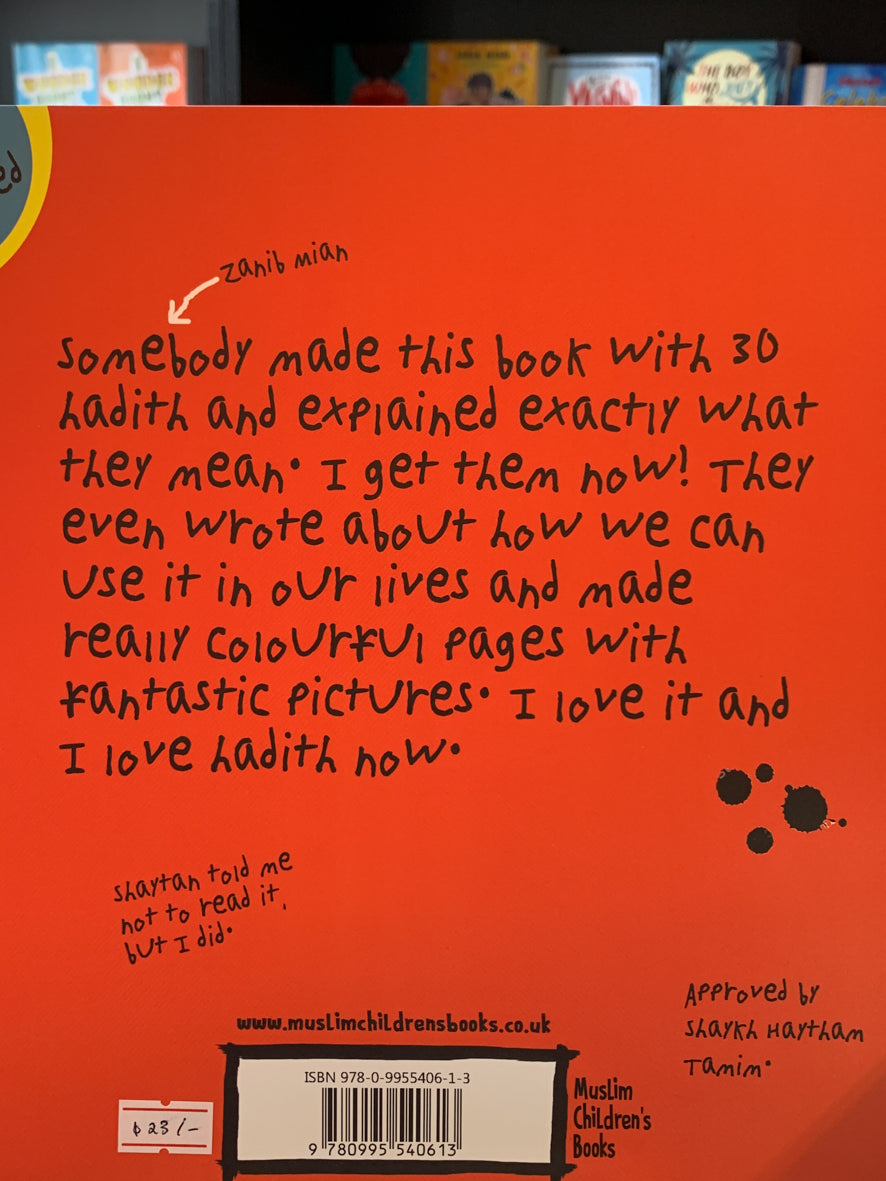 zanib mian
Somebody made this book with 30
hadith and explained exactly what
they mean. I get them now! They
even wrote about how we can
use it in our lives and made
really colourful pages with
fantastic pictures. I love it and
I love hadith now.
shaytan told me
not to read it,
but I did.
Approved by
Shaykh Haytham
Tamim.
www.muslimchildrensbooks.co.uk
ISBN 978-0-9955406-1-3
9 780995 540613
Muslim
Children's
Books
$ 23/-